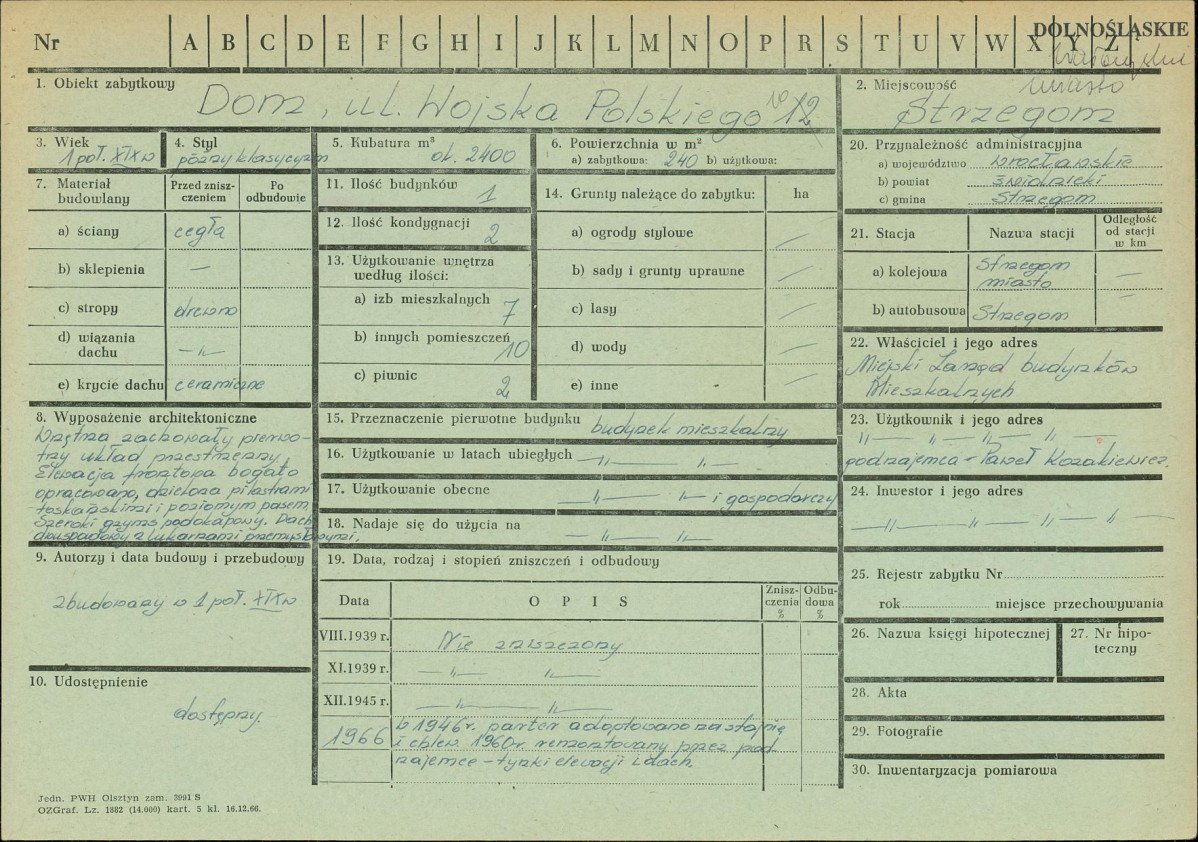 Nr A B C D E F G H I J K L M N O P R S T U V W X Y Z DOLNOŚLĄSKIE
miasto
1. Obiekt zabytkowy Dom, ul. Wojska Polskiego 10 12
2. Miejscowość Strzegom
3. Wiek 1 poł. XIX w
4. Styl późny klasycyzm
5. Kubatura m³ ok. 2400
6. Powierzchnia w m²
a) zabytkowa: 240 b) użytkowa:
20. Przynależność administracyjna
a) województwo wrocławskie
b) powiat świdnicki
c) gmina Strzegom
7. Materiał budowlany
Przed znisz-
czeniem
Po
odbudowie
a) ściany cegła
b) sklepienia —
c) stropy drewno
d) wiązania
dachu —〃—
e) krycie dachu ceramiczne
11. Ilość budynków 1
12. Ilość kondygnacji 2
13. Użytkowanie wnętrza
według ilości:
a) izb mieszkalnych 7
b) innych pomieszczeń 10
c) piwnic 2
14. Grunty należące do zabytku: ha
a) ogrody stylowe —
b) sady i grunty uprawne —
c) lasy —
d) wody —
e) inne —
21. Stacja Nazwa stacji
Odległość
od stacji
w km
a) kolejowa Strzegom
miasto —
b) autobusowa Strzegom —
22. Właściciel i jego adres
Miejski Zarząd budynków
Mieszkalnych
8. Wyposażenie architektoniczne
Wnętrza zachowały pierwo-
tny układ przestrzenny
Elewacja frontowa bogato
opracowana, dzielona pilastrami
toskańskimi i poziomym pasem.
Szeroki gzyms podokapowy. Dach
dwuspadowy z lukarnami przemysłowymi.
15. Przeznaczenie pierwotne budynku budynek mieszkalny
16. Użytkowanie w latach ubiegłych —〃— 〃—
17. Użytkowanie obecne —〃— 〃— i gospodarczy
18. Nadaje się do użycia na —〃— 〃—
23. Użytkownik i jego adres
〃— 〃— 〃— 〃—
podnajemca – Paweł Kozakiewicz.
24. Inwestor i jego adres
—〃— 〃— 〃— 〃—
9. Autorzy i data budowy i przebudowy
zbudowany w 1 poł. XIX w
10. Udostępnienie
dostępny.
19. Data, rodzaj i stopień zniszczeń i odbudowy
Data OPIS
Znisz-
czenia
%
Odbu-
dowa
%
VIII.1939 r. Nie zniszczony
XI.1939 r. —〃— 〃—
XII.1945 r. —〃— 〃—
1966 w 1946r. parter adoptowano na stajnię
i chlew. 1960r. remontowany przez pod
najemcę – tynki elewacji i dach
25. Rejestr zabytku Nr
rok miejsce przechowywania
26. Nazwa księgi hipotecznej
27. Nr hipo-
teczny
28. Akta
29. Fotografie
30. Inwentaryzacja pomiarowa
Jedn. PWH Olsztyn zam. 3991 S
OZGraf. Lz. 1882 (14.000) kart. 5 kl. 16.12.66.